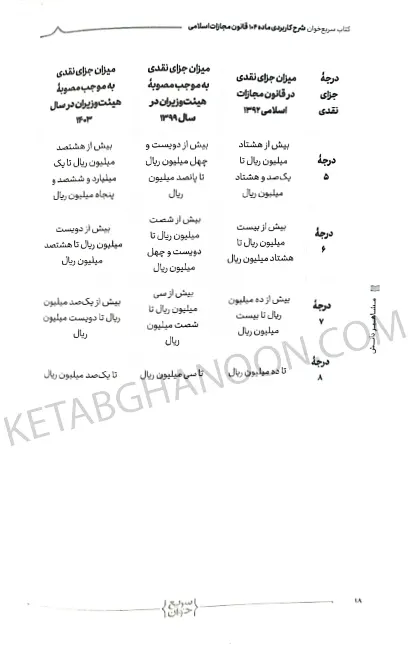 کتاب سریع‌خوان شرح کاربردی ماده ۱۰۴ قانون مجازات اسلامی
درجۀ
جزای
نقدی
میزان جزای نقدی
در قانون مجازات
اسلامی ۱۳۹۲
میزان جزای نقدی
به موجب مصوبۀ
هیئت‌وزیران در
سال ۱۳۹۹
میزان جزای نقدی
به موجب مصوبۀ
هیئت‌وزیران در سال
۱۴۰۳
درجۀ
۵
بیش از هشتاد
میلیون ریال تا
یک‌صد و هشتاد
میلیون ریال
بیش از دویست و
چهل میلیون ریال
تا پانصد میلیون
ریال
بیش از هشتصد
میلیون ریال تا یک
میلیارد و ششصد و
پنجاه میلیون ریال
درجۀ
۶
بیش از بیست
میلیون ریال تا
هشتاد میلیون ریال
بیش از شصت
میلیون ریال تا
دویست و چهل
میلیون ریال
بیش از دویست
میلیون ریال تا هشتصد
میلیون ریال
درجۀ
۷
بیش از ده میلیون
ریال تا بیست
میلیون ریال
بیش از سی
میلیون ریال تا
شصت میلیون
ریال
بیش از یک‌صد میلیون
ریال تا دویست میلیون
ریال
درجۀ
۸
تا ده میلیون ریال
تا سی میلیون ریال
تا یک‌صد میلیون ریال
مشاهیر دانش
KETABGHANOON.COM
سریع
خوان
۱۸